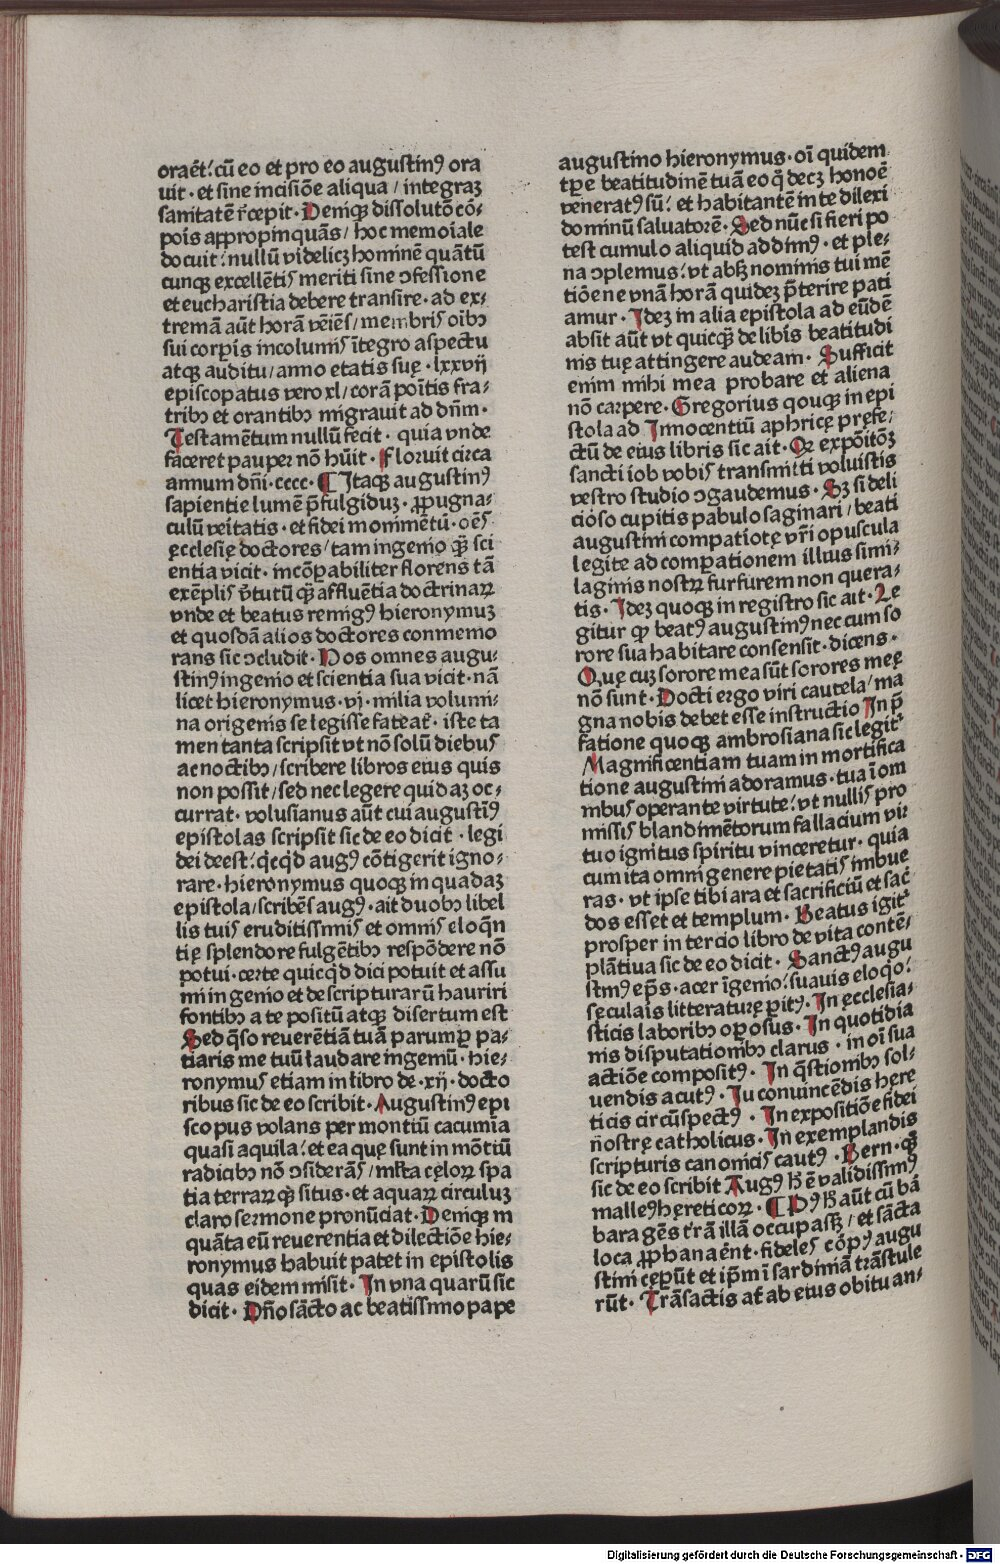 oraēt: cū eo et pro eo augustinꝰ ora
uit · et sine incisiōe aliqua / integraꝫ
sanitatē r̄cepit · Deniqꝫ dissolutōe cō-
pois appropinquās / hoc memoiale
docuit: nullū videlicꝫ hominē quātū
cunqꝫ excellētiꝰ meriti sine ↄfessione
et eucharistia debere transire · ad ex-
tremā aūt horā veiēs / membris oībꝰ
sui corpis incolumis ītegro aspectu
atqꝫ auditu / anno etatis suę · lxxvij
episcopatus vero xl / corā poītis fra-
tribꝰ et orantibꝰ migrauit ad dn̄m ·
Testamētum nullū fecit · quia vnde
faceret pauper nō hūit · Floruit circa
annum dn̄i · cccc · ¶ Itaqꝫ augustinꝰ
sapientie lumē p̄fulgiduꝫ · ꝓpugna-
culū veītatis · et fidei monimētū · oēs
ęcclesię doctores / tam ingenio qꝫ̄ sci
entia vicit · incōꝑabiliter florens tā
exēplis v̄tutū qꝫ̄ affluētia doctrinaꝝ
vnde et beatus remigꝰ hieronymuꝫ
et quosdā alios doctores conmemo
rans sic ↄcludit · Hos omnes augu-
stinꝰ ingenio et scientia sua vicit · nā
licet hieronymus · vj · milia volumi-
na origenis se legisse fateat̄ · iste ta
men tanta scripsit vt nō solū diebus
ac noctibꝰ / scribere libros eius quis
non possit / sed nec legere quidaꝫ oc-
currat · volusianus aūt cui augustīꝰ
epistolas scripsit sic de eo dicit · legi
dei deest: qͥcqͥd augꝰ cōtigerit igno-
rare · hieronymus quoqꝫ in quadaꝫ
epistola / scribēs augꝰ · ait duobꝰ libel
lis tuis eruditissimis et omnis eloqn̄
tię splendore fulgētibꝰ respōdere nō
potui · certe quicqͥd dici potuit et assu
mi ingenio et de scripturarū hauriri
fontibꝰ a te positū atqꝫ disertum est
Sed qͣso reuerētiā tuā parumꝑ pa-
tiaris me tuū laudare ingeniū · hie-
ronymus etiam in libro de · xij · docto
ribus sic de eo scribit · Augustinꝰ epi
scopus volans per montiū cacumīa
quasi aquila: et ea quę sunt in mōtiū
radicibꝰ nō ↄsiderās / ml̄ta cęloꝝ spa
tia terraꝝ qꝫ̄ situs · et aquaꝝ circuluꝫ
claro sermone pronūciat · Deniqꝫ in
quāta eū reuerentia et dilectiōe hie-
ronymus habuit patet in epistolis
quas eidem misit · In vna quarū sic
dicit · Dn̄o sācto ac beatissimo pape
augustino hieronymus · oī quidem
tꝑe beatitudinē tuā eo q̄ decꝫ honoē
veneratꝰ sū: et habitantē in te dilexi
dominū saluatorē · Sed nūc si fieri po
test cumulo aliquid addimꝰ · et ple-
na ↄplemus: vt absqꝫ nominis tui mē
tiōe ne vnā horā quideꝫ p̄terire pati
amur · Ideꝫ in alia epistola ad eūdē
absit aūt vt quicqꝫ̄ de libis beatitudi
nis tuę attingere audeam · Sufficit
enim mihi mea probare et aliena
nō carpere · Gregorius qͦuqꝫ in epi
stola ad Innocentiū aphricę pręfe-
ctū de eius libris sic ait · Qꝛ expōītōꝫ
sancti iob vobis transmitti voluistis
vestro studio ↄgaudemus · Sꝫ si deli
cioso cupitis pabulo saginari / beati
augustini compatiotę vr̄i opuscula
legite ad comꝑationem illius simi-
laginis nostꝝ furfurem non quera-
tis · Ideꝫ quoqꝫ in registro sic ait · Le
gitur ꝙ beatꝰ augustinꝰ nec cum so
rore sua habitare consensit · dicens ·
Quę cuꝫ sorore mea sūt sorores meę
nō sunt · Docti ergo viri cautela / ma
gna nobis debet esse instructio In p̄
fatione quoqꝫ ambrosiana sic legit̄
Magnificentiam tuam in mortifica
tione augustini adoramus · tua ī om
nibus operante virtute: vt nullis pro
missis blandimētorum fallacium vir
tuo ignitus spiritu vinceretur · quia
cum ita omni genere pietatis imbue
ras · vt ipse tibi ara et sacrificiū et sac̄
dos esset et templum · Beatus igit̄
prosper in tercio libro de vita contē-
plātiua sic de eo dicit · Sanctꝰ augu
stinꝰ ep̄s · acer īgenio: suauis eloqͦ:
sęculais litteraturę ꝑitꝰ · In ęcclesia-
sticis laboribꝰ oꝑosus · In quotidia
nis disputationibꝰ clarus · in oī sua
actiōe compositꝰ · In qͣstionibꝰ sol-
uendis acutꝰ · In conuincēdis here
ticis circūspectꝰ · In expositiōe fidei
n̄ostrę catholicus · In exemplandis
scripturis canonicis cautꝰ · Bern · qꝫ̄
sic de eo scribit Augꝰ h̄ ē validissimꝰ
malleꝰ hęreticoꝝ · ¶ Pꝰ h̄ aūt cū bā
bara gēs tr̄ā illā occupassꝫ / et sācta
loca ꝓphanaēnt · fideles cōpꝰ augu
stini cepūt et ip̄m ī sardiniā trāstule
rūt · Trāsactis at̄ ab eius obitu an-
Digitalisierung gefördert durch die Deutsche Forschungsgemeinschaft · DFG